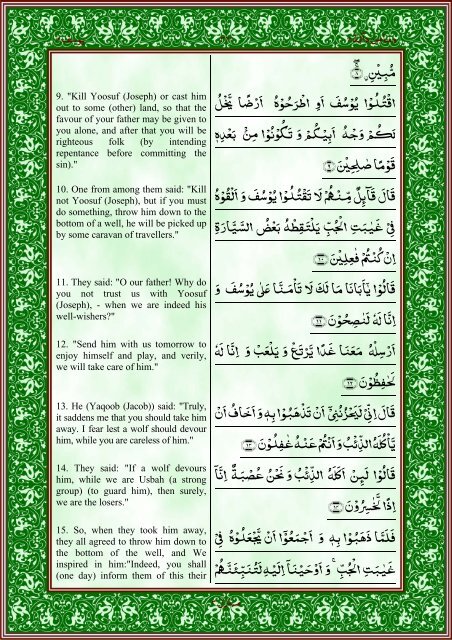 مُّبِيْنِ ۙ﴿۸﴾
9. "Kill Yoosuf (Joseph) or cast him
out to some (other) land, so that the
favour of your father may be given to
you alone, and after that you will be
righteous folk (by intending
repentance before committing the
sin)."
اقْتُلُوْا يُوْسُفَ اَوِ اطْرَحُوْهُ اَرْضًا يَّخْلُ
لَكُمْ وَجْهُ اَبِيْكُمْ وَ تَكُوْنُوْا مِنْۢ بَعْدِهٖ
قَوْمًا صٰلِحِيْنَ ﴿۹﴾
10. One from among them said: "Kill
not Yoosuf (Joseph), but if you must
do something, throw him down to the
bottom of a well, he will be picked up
by some caravan of travellers."
قَالَ قَآىِٕلٌ مِّنْهُمْ لَا تَقْتُلُوْا يُوْسُفَ وَ اَلْقُوْهُ
فِيْ غَيٰبَتِ الْجُبِّ يَلْتَقِطْهُ بَعْضُ السَّيَّارَةِ
اِنْ كُنْتُمْ فٰعِلِيْنَ ﴿۱۰﴾
11. They said: "O our father! Why do
you not trust us with Yoosuf
(Joseph), - when we are indeed his
well-wishers?"
قَالُوْا يٰۤاَبَانَا مَا لَكَ لَا تَاْمَنَّا عَلٰى يُوْسُفَ وَ
اِنَّا لَهٗ لَنٰصِحُوْنَ ﴿۱۱﴾
12. "Send him with us tomorrow to
enjoy himself and play, and verily,
we will take care of him."
اَرْسِلْهُ مَعَنَا غَدًا يَّرْتَعْ وَ يَلْعَبْ وَ اِنَّا لَهٗ
لَحٰفِظُوْنَ ﴿۱۲﴾
13. He (Yaqoob (Jacob)) said: "Truly,
it saddens me that you should take him
away. I fear lest a wolf should devour
him, while you are careless of him."
قَالَ اِنِّيْ لَيَحْزُنُنِيْۤ اَنْ تَذْهَبُوْا بِهٖ وَ اَخَافُ اَنْ
يَّاْكُلَهُ الذِّئْبُ وَ اَنْتُمْ عَنْهُ غٰفِلُوْنَ ﴿۱۳﴾
14. They said: "If a wolf devours
him, while we are Usbah (a strong
group) (to guard him), then surely,
we are the losers."
قَالُوْا لَىِٕنْ اَكَلَهُ الذِّئْبُ وَ نَحْنُ عُصْبَةٌ اِنَّاۤ
اِذًا لَّخٰسِرُوْنَ ﴿۱۴﴾
15. So, when they took him away,
they all agreed to throw him down to
the bottom of the well, and We
inspired in him:"Indeed, you shall
(one day) inform them of this their
فَلَمَّا ذَهَبُوْا بِهٖ وَ اَجْمَعُوْۤا اَنْ يَّجْعَلُوْهُ فِيْ
غَيٰبَتِ الْجُبِّ ۚ وَ اَوْحَيْنَاۤ اِلَيْهِ لَتُنَبِّئَنَّهُمْ